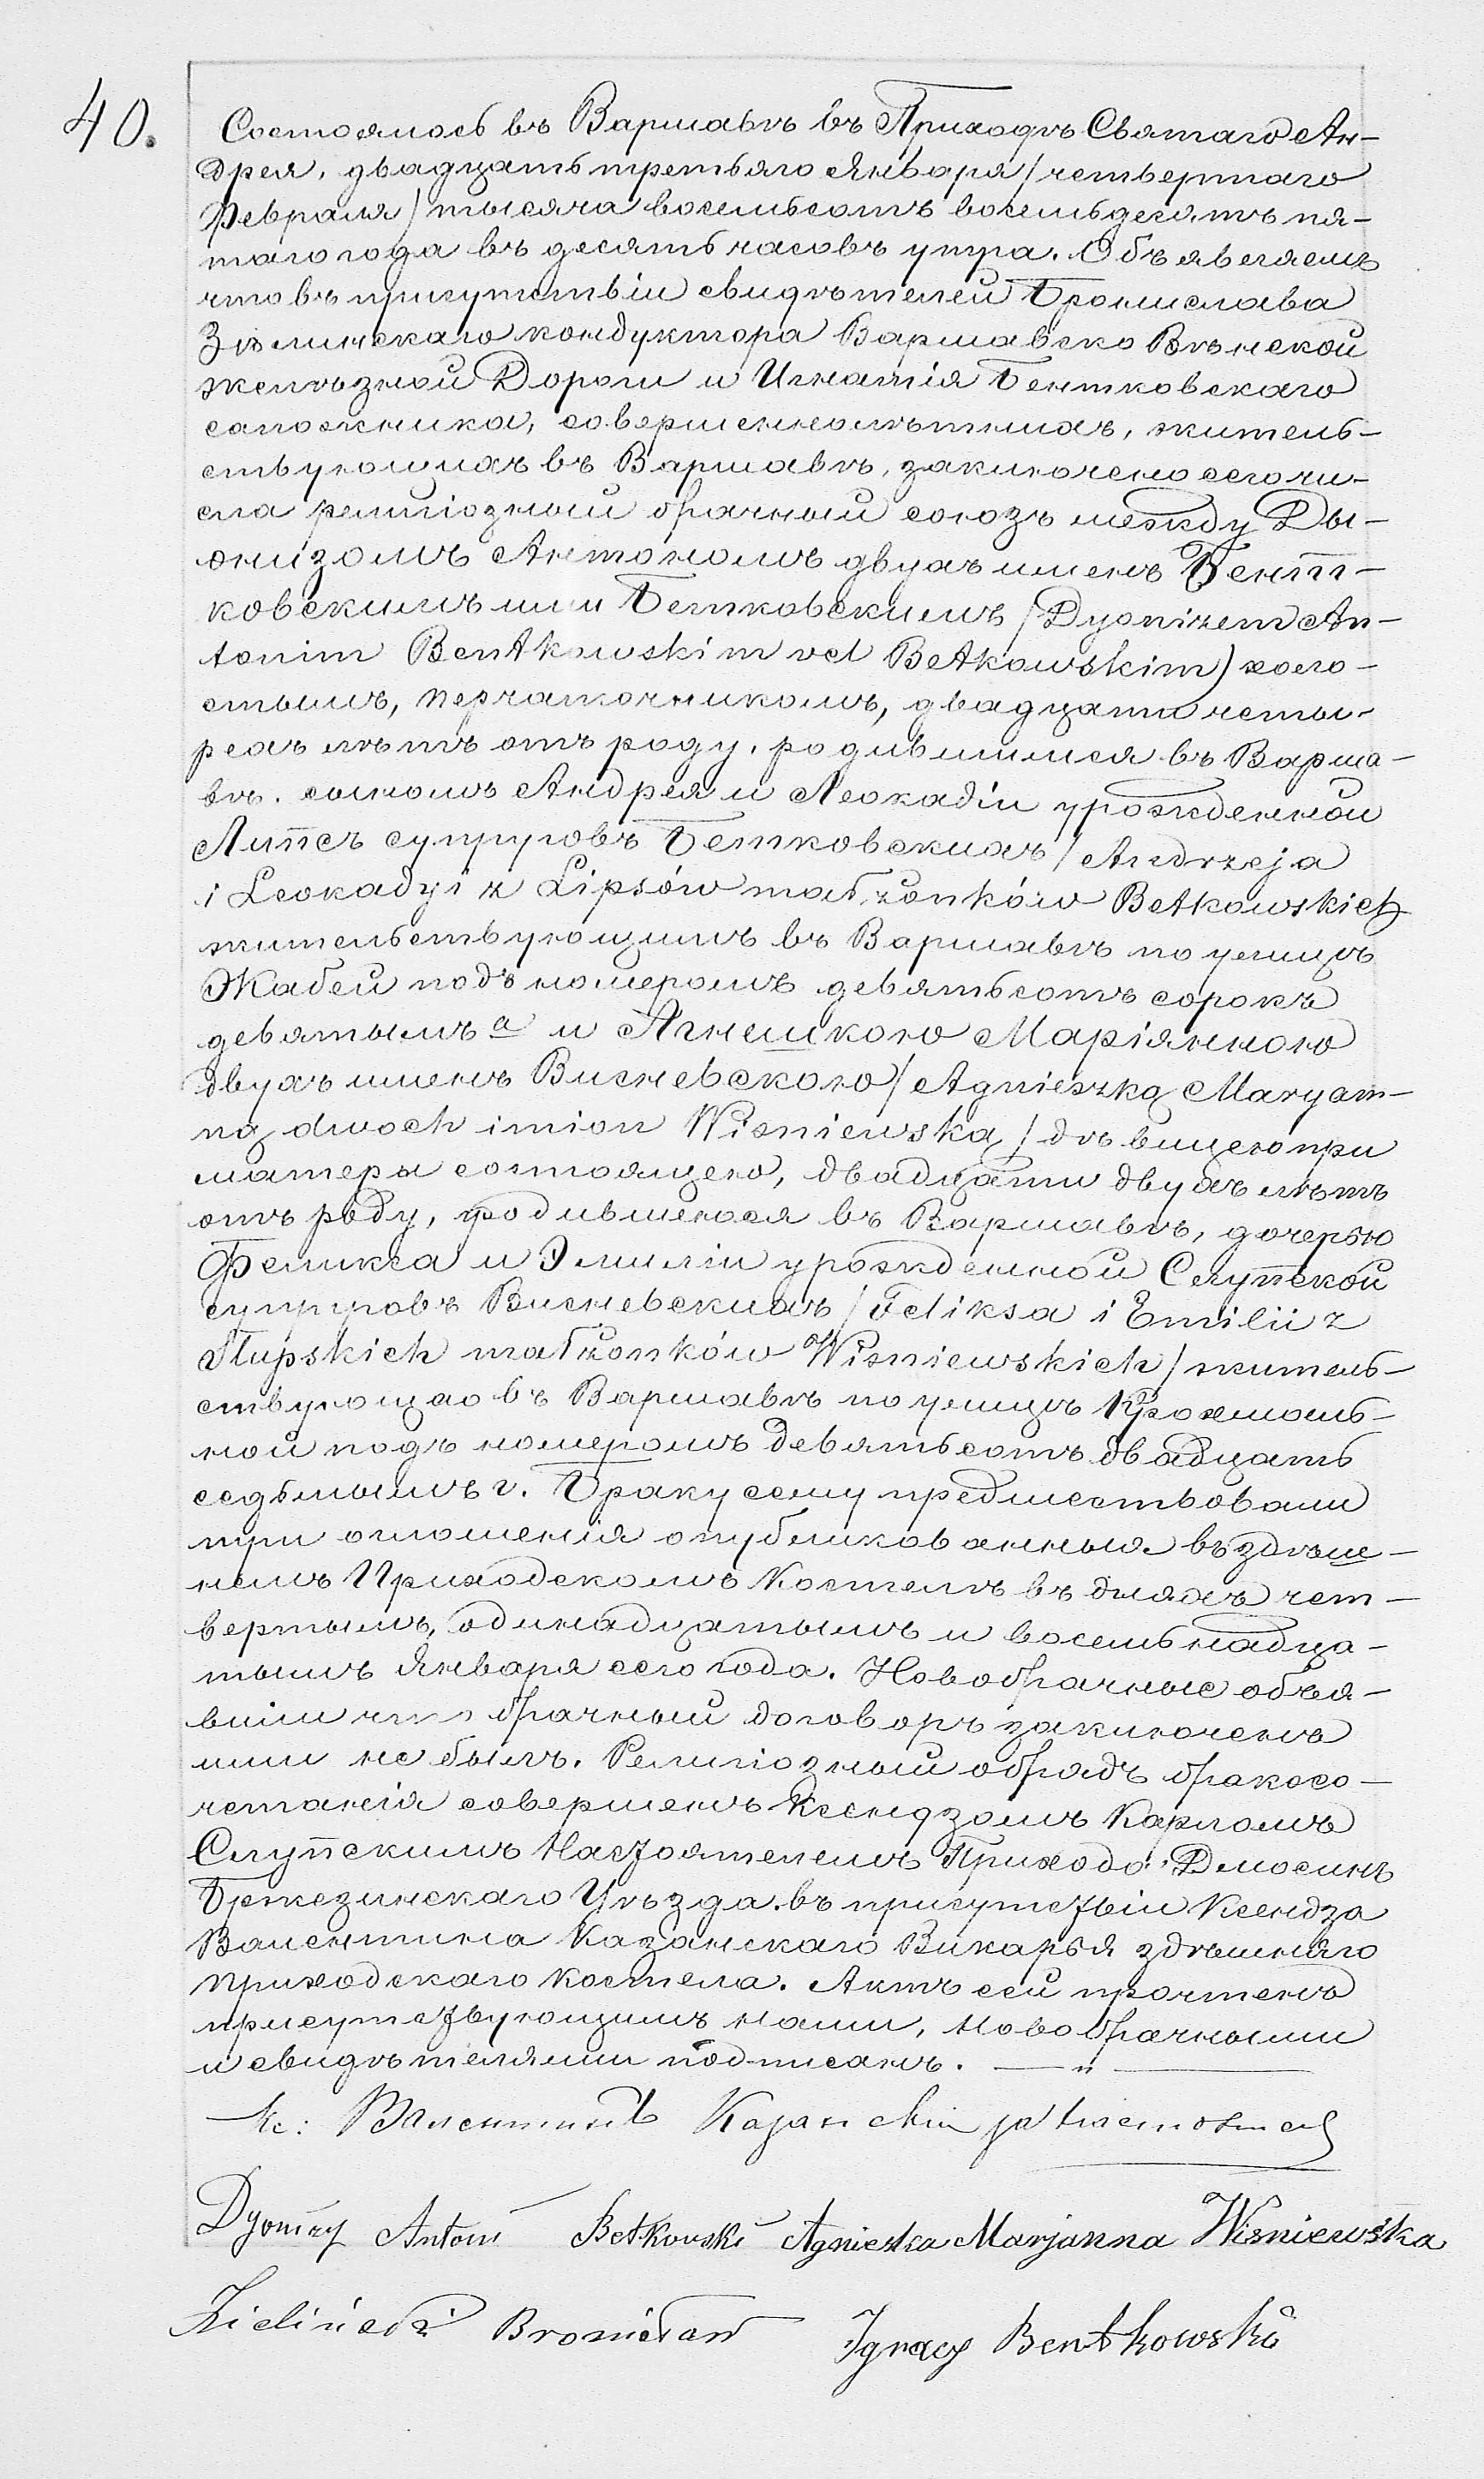 40.
Состоялось въ Варшавѣ въ Приходѣ Святаго Ан-
дрея, двадцать третьяго Января / четвертаго
Февраля / тысяча восемьсотъ восемьдесятъ пя-
таго года въ десять часовъ утра. Объявляемъ
что въ присутствіи свидѣтелей Бронислава
Зѣлинскаго кондуктора Варшавско Вѣнской
желѣзной Дороги и Игнатія Бентковскаго
сапожника, совершеннолѣтнихъ, житель-
ствующихъ въ Варшавѣ, заключено сего чи-
сла религіозный брачный союзъ между Ды-
онизомъ Антономъ двухъ именъ Бент-
ковскимъ или Бетковскимъ / Dyonizem An-
tonim Bentkowskim vel Betkowskim) холо-
стымъ, перчаточникомъ, двадцати четы-
рехъ лѣтъ отъ роду, родившимся въ Варша-
вѣ. сыномъ Андрея и Леокадіи урожденной
Липсъ супруговъ Бетковскихъ / Andrzeja
i Leokadyi z Lipsów małżonków Betkowskich
жительствующимъ въ Варшавѣ по улицѣ
Жабей подъ номеромъ девятьсотъ сорокъ
девятымъ а и Агнешкою Маріянною
двухъ именъ Висневскою / Agnieszką Maryan-
ną dwoch imion Wisniewską / дѣвицею при
матери состоящею, двадцати двухъ лѣтъ
отъ роду, родившеюся въ Варшавѣ, дочерью
Феликса и Эмиліи урожденной Слупской
супруговъ Висневскихъ / Feliksa i Emilii z
Słupskich małżonków Wisniewskich / житель-
ствующею въ Варшавѣ по улицѣ Крохмаль-
ной подъ номеромъ девятьсотъ двадцать
седьмымъ г. Браку сему предшествовали
три оглошенія опубликованныя въ здѣше-
немъ Приходскомъ Костелѣ въ дняхъ чет-
вертымъ, одинадцатымъ и восемьнадца-
тымъ Января сего года. Новобрачные объя-
вили что брачный договоръ заключенъ
ими не былъ. Религіозный обрядъ бракосо-
четанія совершенъ Ксендзомъ Карломъ
Слупскимъ Настоятелемъ Прихода Дмосинъ
Бжезинскаго Уѣзда. въ присутствіи Ксендза
Валентина Казанскаго Викарья здѣшняго
приходскаго костела. Актъ сей прочтенъ
присутствующимъ нами, новобрачными
и свидѣтелями подписанъ. — „ —
Кс: Валентинъ
Dyonizy Antoni Betkowski Agnieszka Marjanna Wisniewska
Zieliński Bronisław Ignacy Bentkowski